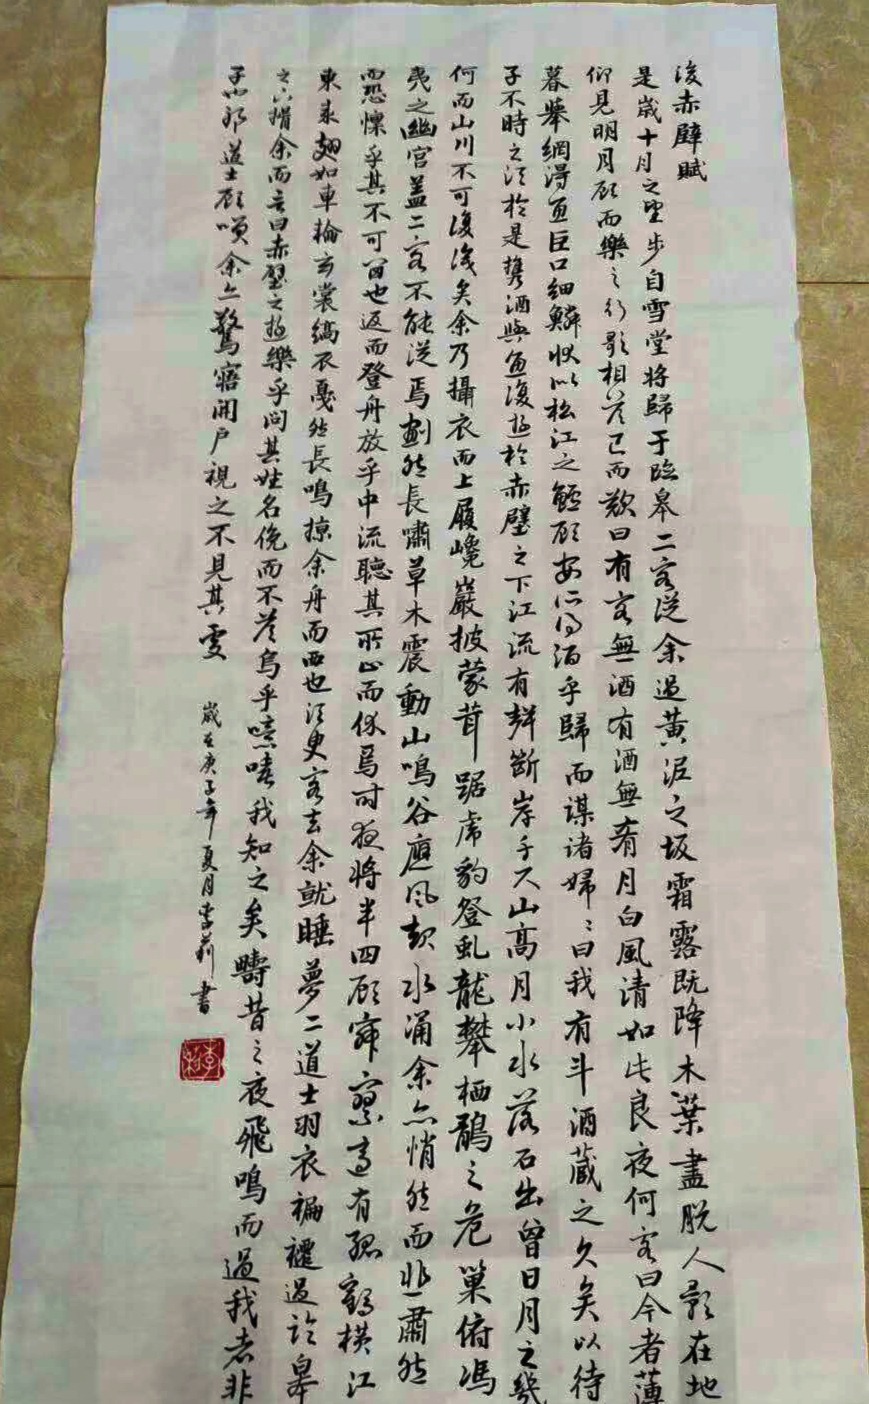 後赤壁賦
是歲十月之望步自雪堂將歸于臨皋二客從余過黃泥之坂霜露既降木葉盡脫人影在地
仰見明月顧而樂之行歌相答已而歎曰有客無酒有酒無肴月白風清如此良夜何客曰今者薄
暮舉網得魚巨口細鱗狀似松江之鱸顧安所得酒乎歸而謀諸婦〻曰我有斗酒藏之久矣以待
子不時之須於是攜酒與魚復遊於赤壁之下江流有聲斷岸千尺山高月小水落石出曾日月之幾
何而山川不可復識矣余乃攝衣而上履巉巖披蒙茸踞虎豹登虬龍攀栖鶻之危巢俯馮
夷之幽宮蓋二客不能從焉劃然長嘯草木震動山鳴谷應風起水涌余亦悄然而悲肅然
而恐懍乎其不可留也返而登舟放乎中流聽其所止而休焉時夜將半四顧寂寥適有孤鶴橫江
東來翅如車輪玄裳縞衣戛然長鳴掠余舟而西也須臾客去余就睡夢二道士羽衣褊褼過臨皋
之下揖余而言曰赤壁之遊樂乎問其姓名俛而不答烏乎噫嘻我知之矣疇昔之夜飛鳴而過我者非
子也耶道士顧唉余亦驚寤開戶視之不見其處
歲在庚子年夏月李莉書
李莉